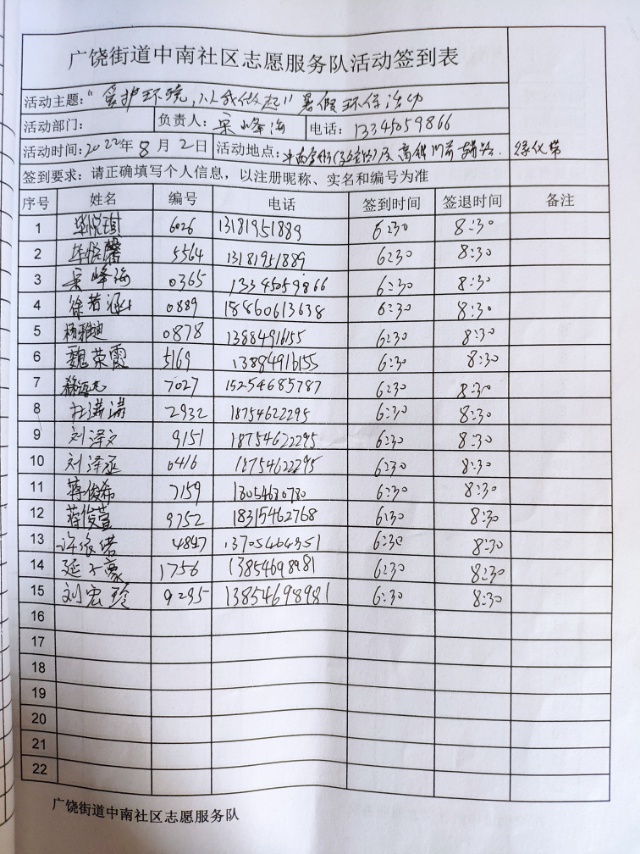 广饶街道中南社区志愿服务队活动签到表
活动主题：“爱护环境，从我做起”暑假环保活动
活动部门： 负责人：吴峰海 电话：13345059866
活动时间：2022年8月2日 活动地点： 绿化带
签到要求：请正确填写个人信息，以注册昵称、实名和编号为准
序号 姓名 编号 电话 签到时间 签退时间 备注
1 6026 13181951889 6:30 8:30
2 5564 13181951889 6:30 8:30
3 吴峰海 0365 13345059866 6:30 8:30
4 徐若涵 0889 18860613638 6:30 8:30
5 杨雅迪 0878 13884916155 6:30 8:30
6 魏荣霞 5169 13884916155 6:30 8:30
7 7027 15254685787 6:30 8:30
8 杜满满 2932 18754622295 6:30 8:30
9 刘泽文 9151 18754622295 6:30 8:30
10 刘泽丞 0416 18754622295 6:30 8:30
11 蒋俊希 7159 6:30 8:30
12 蒋俊萱 9752 18315462768 6:30 8:30
13 6:30 8:30
14 延子豪 1756 13854698981 6:30 8:30
15 刘宏玲 9295 13854698981 6:30 8:30
16
17
18
19
20
21
22
广饶街道中南社区志愿服务队